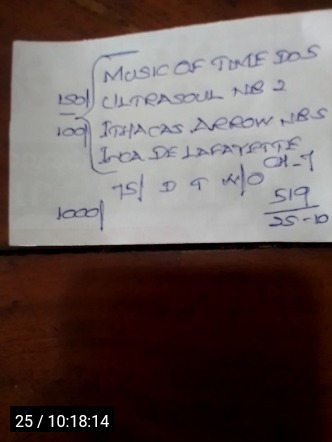 MUSIC OF TIME DOS
150/ ULTRASOUL NB 2
100/ ITHACAS ARROW NBS
INCA DE LAFAYETTE
CH-7
75/ D T W/O
1000/
519
25-10
25 / 10:18:14